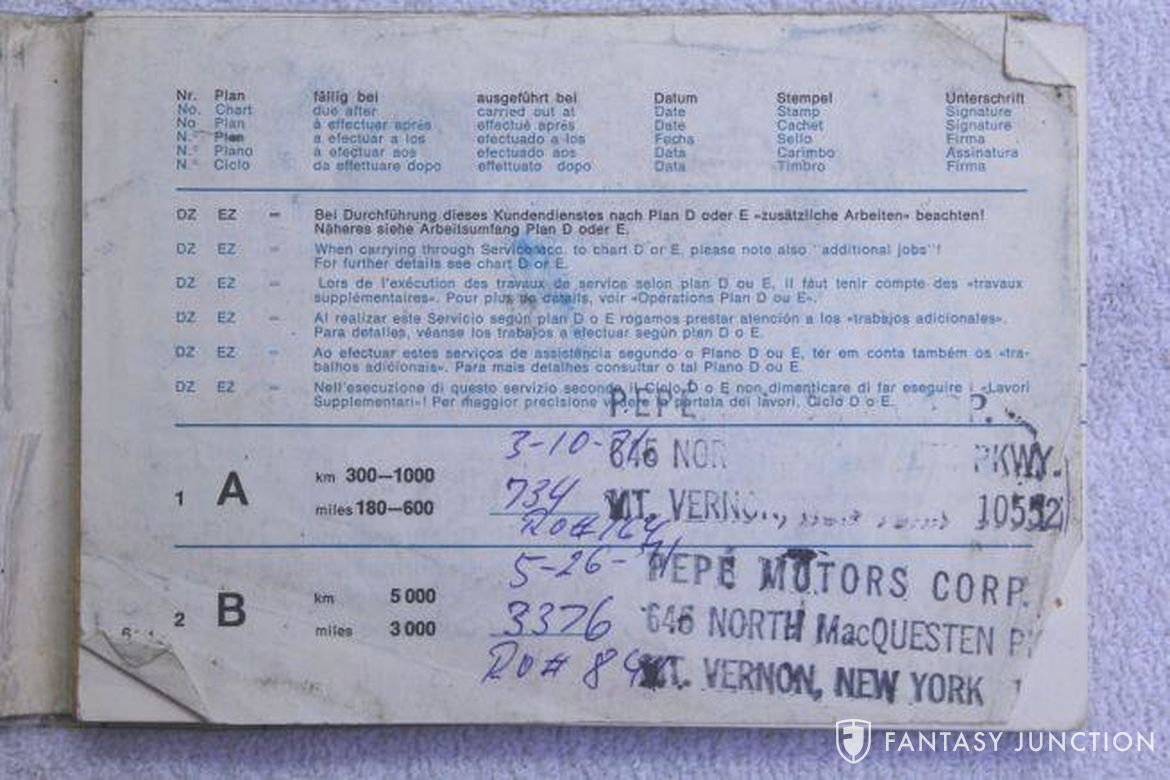 Nr. Plan fällig bei ausgeführt bei Datum Stempel Unterschrift
No. Chart due after carried out at Date Stamp Signature
No Plan à effectuer après effectué après Date Cachet Signature
N.º Plan a efectuar a los efectuado a los Fecha Sello Firma
N.º Plano à efectuar aos efectuado aos Data Carimbo Assinatura
N.º Ciclo da effettuare dopo effettuato dopo Data Timbro Firma
DZ EZ – Bei Durchführung dieses Kundendienstes nach Plan D oder E »zusätzliche Arbeiten« beachten!
Näheres siehe Arbeitsumfang Plan D oder E.
DZ EZ – When carrying through Service acc. to chart D or E, please note also "additional jobs"!
For further details see chart D or E.
DZ EZ – Lors de l'exécution des travaux de service selon plan D ou E, il faut tenir compte des «travaux
supplémentaires». Pour plus de détails, voir «Opérations Plan D ou E».
DZ EZ – Al realizar este Servicio según plan D o E rogamos prestar atención a los «trabajos adicionales».
Para detalles, véanse los trabajos a efectuar según plan D o E.
DZ EZ – Ao efectuar estes serviços de assistência segundo o Plano D ou E, ter em conta também os «tra-
balhos adicionais». Para mais detalhes consultar o tal Plano D ou E.
DZ EZ – Nell'esecuzione di questo servizio secondo il Ciclo D o E non dimenticare di far eseguire i «Lavori
Supplementari»! Per maggior precisione vedere la portata dei lavori, Ciclo D o E.
PEPE P.
3-10-71 646 NOR PKWY.
1 A km 300–1000
miles 180–600 734 MT. VERNON, 10552
RO# 164
5-26-71 PEPE MOTORS CORP.
2 B km 5 000
miles 3 000 3376 646 NORTH MacQUESTEN
RO# 84 MT. VERNON, NEW YORK 1
FANTASY JUNCTION